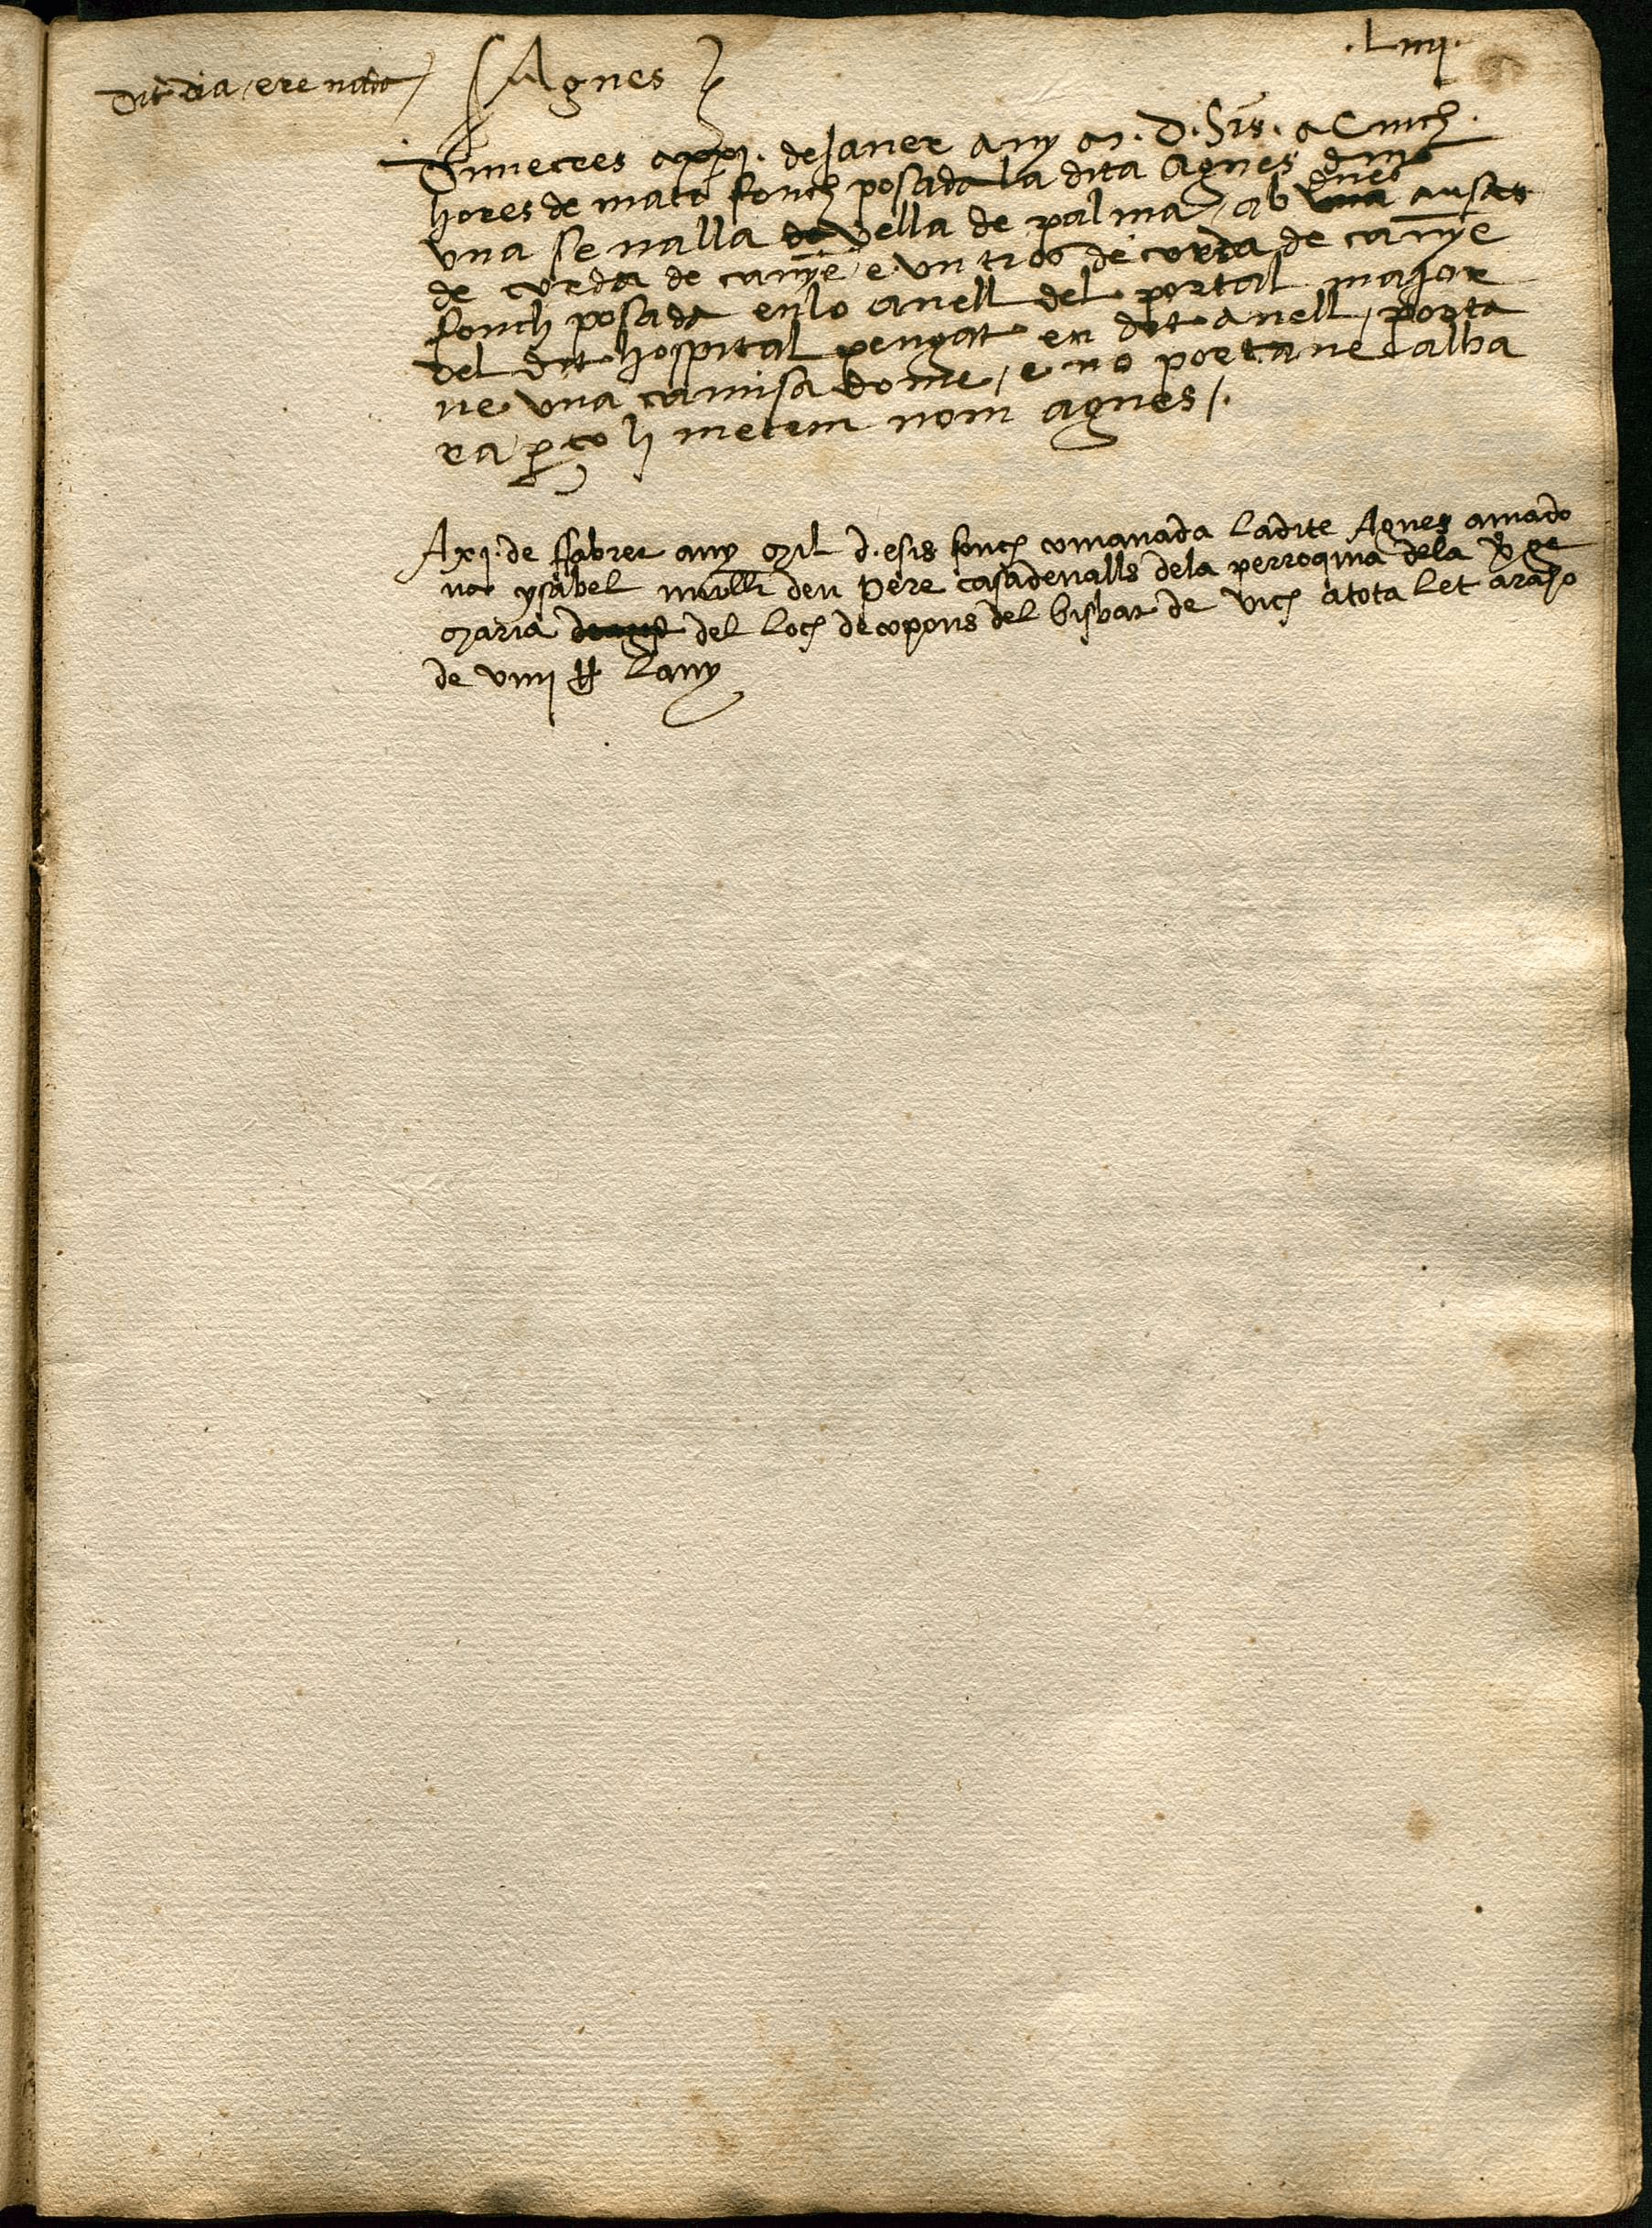 .Liiij.
Dit dia ere nada
Agnes
Dimecres a xxj. de Janer any M. D. Sis. a Cinch.
hores de mati fonch posada la dita Agnes dins
una senalla de vella de palma, ab una dues ansas
de corda de canye e un tros de corda de canye
fonch posada en lo anell del portal major
del dit hospital penyat en dit anell, porta
ne una camisa dome, e no portane alba
ra per ço li metem nom agnes/.
A xj. de ffabrer any Mil d. e sis fonch comanada la dite Agnes a mado
na ysabel mull deu Pere casadevalls de la perroquia dela v ge
Maria del loch de copons del bisbat de vich a tota let a raho
de viiij ll lany